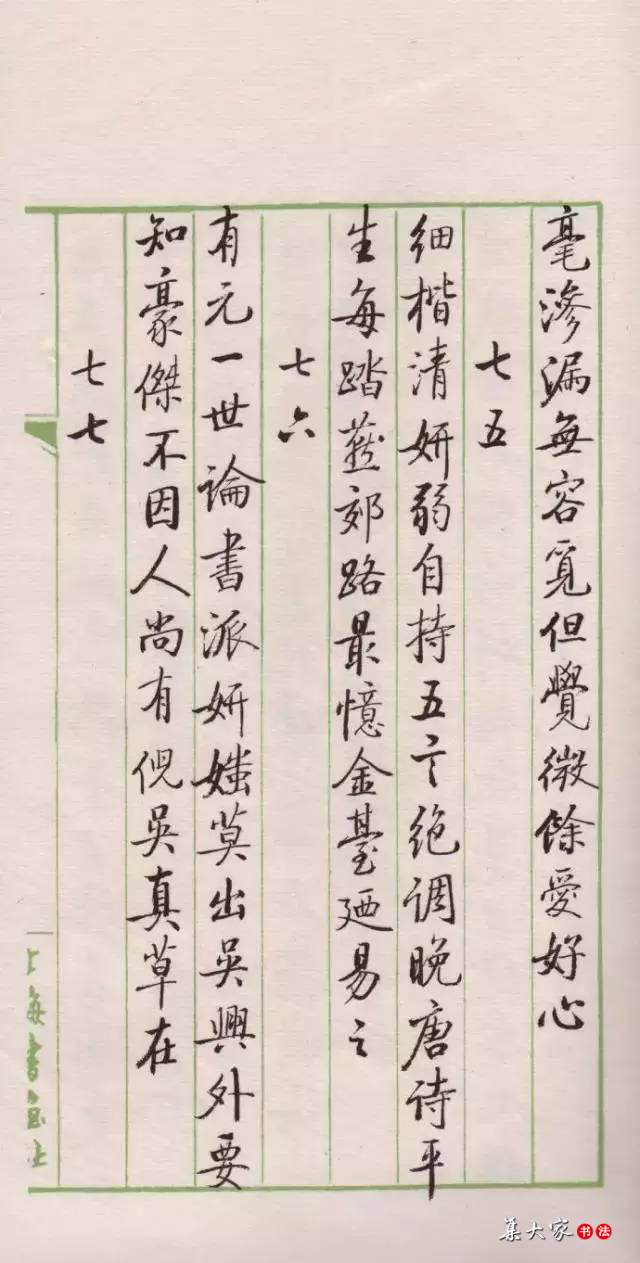 毫滲漏無容覓但覺微餘愛好心
七五
細楷清妍弱自持五言絶調晚唐诗平
生每踏燕郊路最憶金臺廼易之
七六
有元一世論書派妍媸莫出吳興外要
知豪傑不因人尚有倪吳真草在
七七
上海書畫社
集大家书法